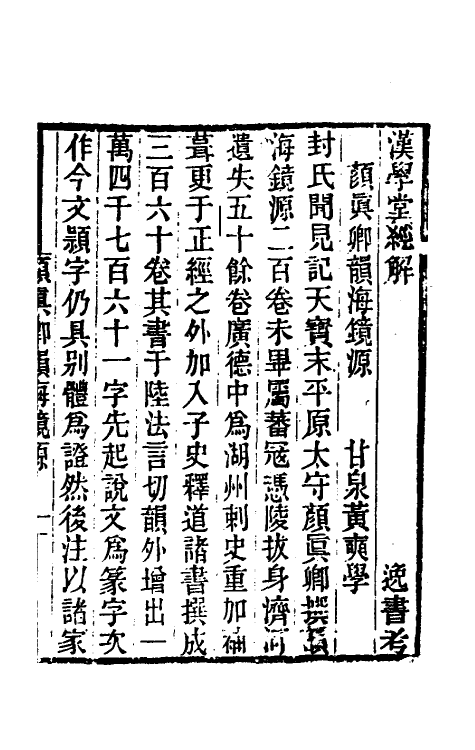 漢學堂經解　逸書考
顏眞卿韻海鏡源　甘泉黃奭學
封氏聞見記天寶末平原太守顏眞卿撰韻
海鏡源二百卷未畢屬蕃冦憑陵拔身濟河
遺失五十餘卷廣德中爲湖州刺史重加補
葺更于正經之外加入子史釋道諸書撰成
三百六十卷其書于陸法言切韻外增出一
萬四千七百六十一字先起說文爲篆字次
作今文隸字仍具別體爲證然後注以諸家
顏眞卿韻海鏡源　一